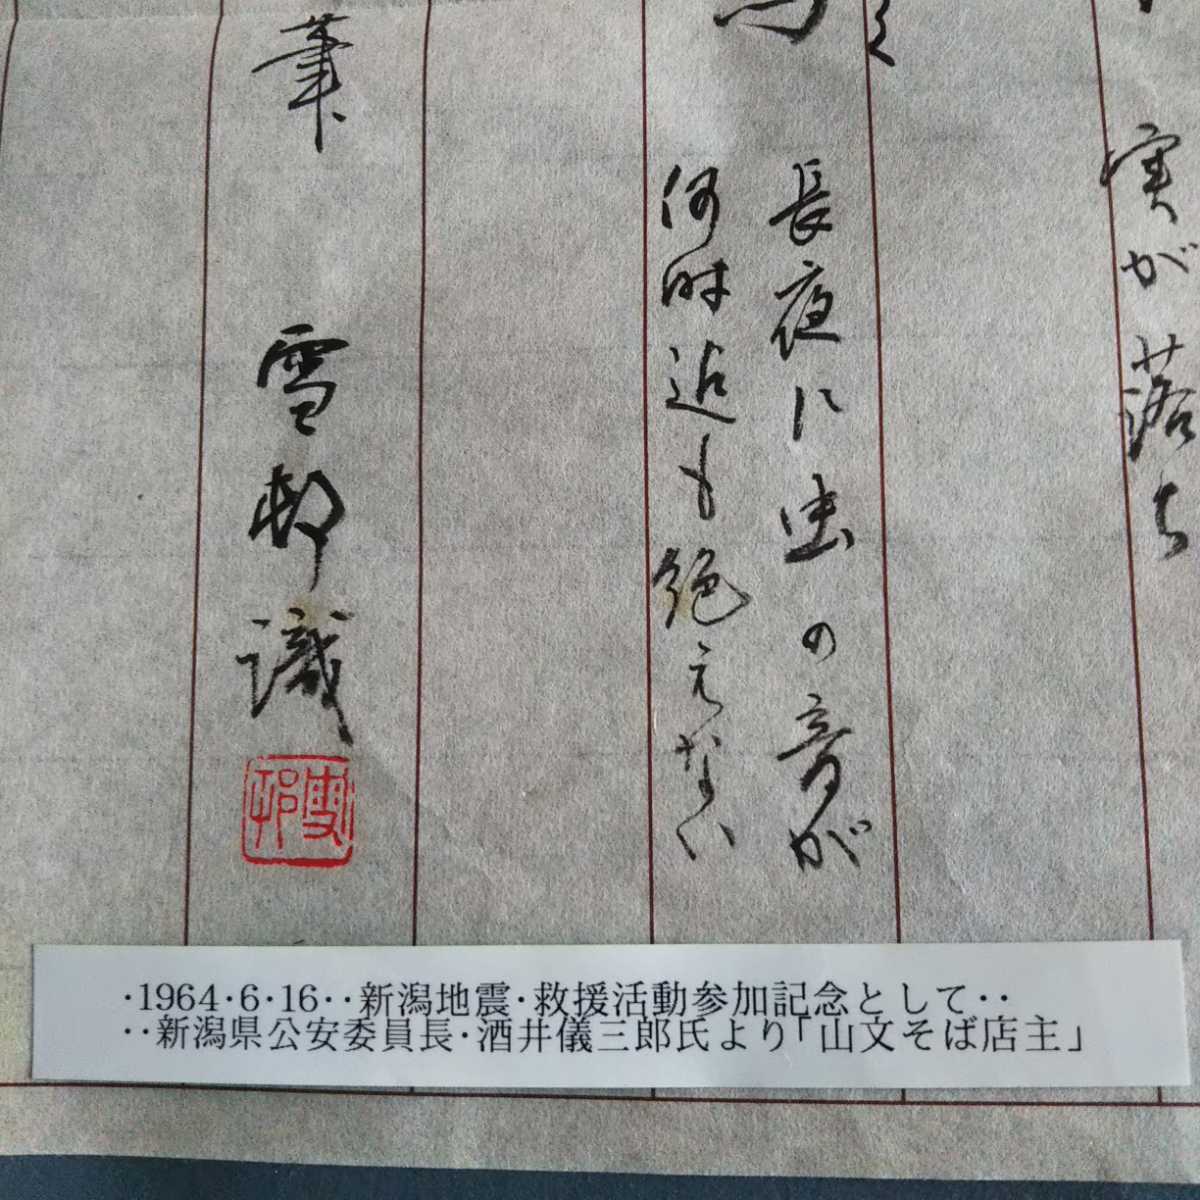 実が落ち
長夜に虫の音が
何時迄も絶えない
筆
雪邨識
雪邨
・1964・6・16・・新潟地震・救援活動参加記念として・・
・・新潟県公安委員長・酒井儀三郎氏より「山文そば店主」